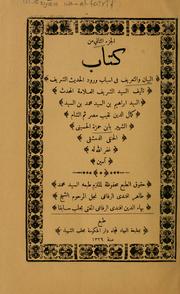 الجزء الثاني من
كتاب
البيان والتعريف في اسباب ورود الحديث الشريف
تأليف السيد الشريف العلامة المحدث
السيد ابراهيم بن السيد محمد بن السيد
كمال الدين نقيب مصر ثم الشام
الشهير بابن حمزة الحسيني
الحنفي الدمشقي
غفر الله له
آمين
حقوق الطبع محفوظة للمتزم طبعه السيد محمد
طاهر افندي الرفاعي نجل المرحوم الشيخ
بهاء الدين افندي الرفاعي المفتي بحلب سابقا
طبع
بمطبعة البهاء تجاه دار الحكومة بحلب الشهباء
سنة ١٣٢٩